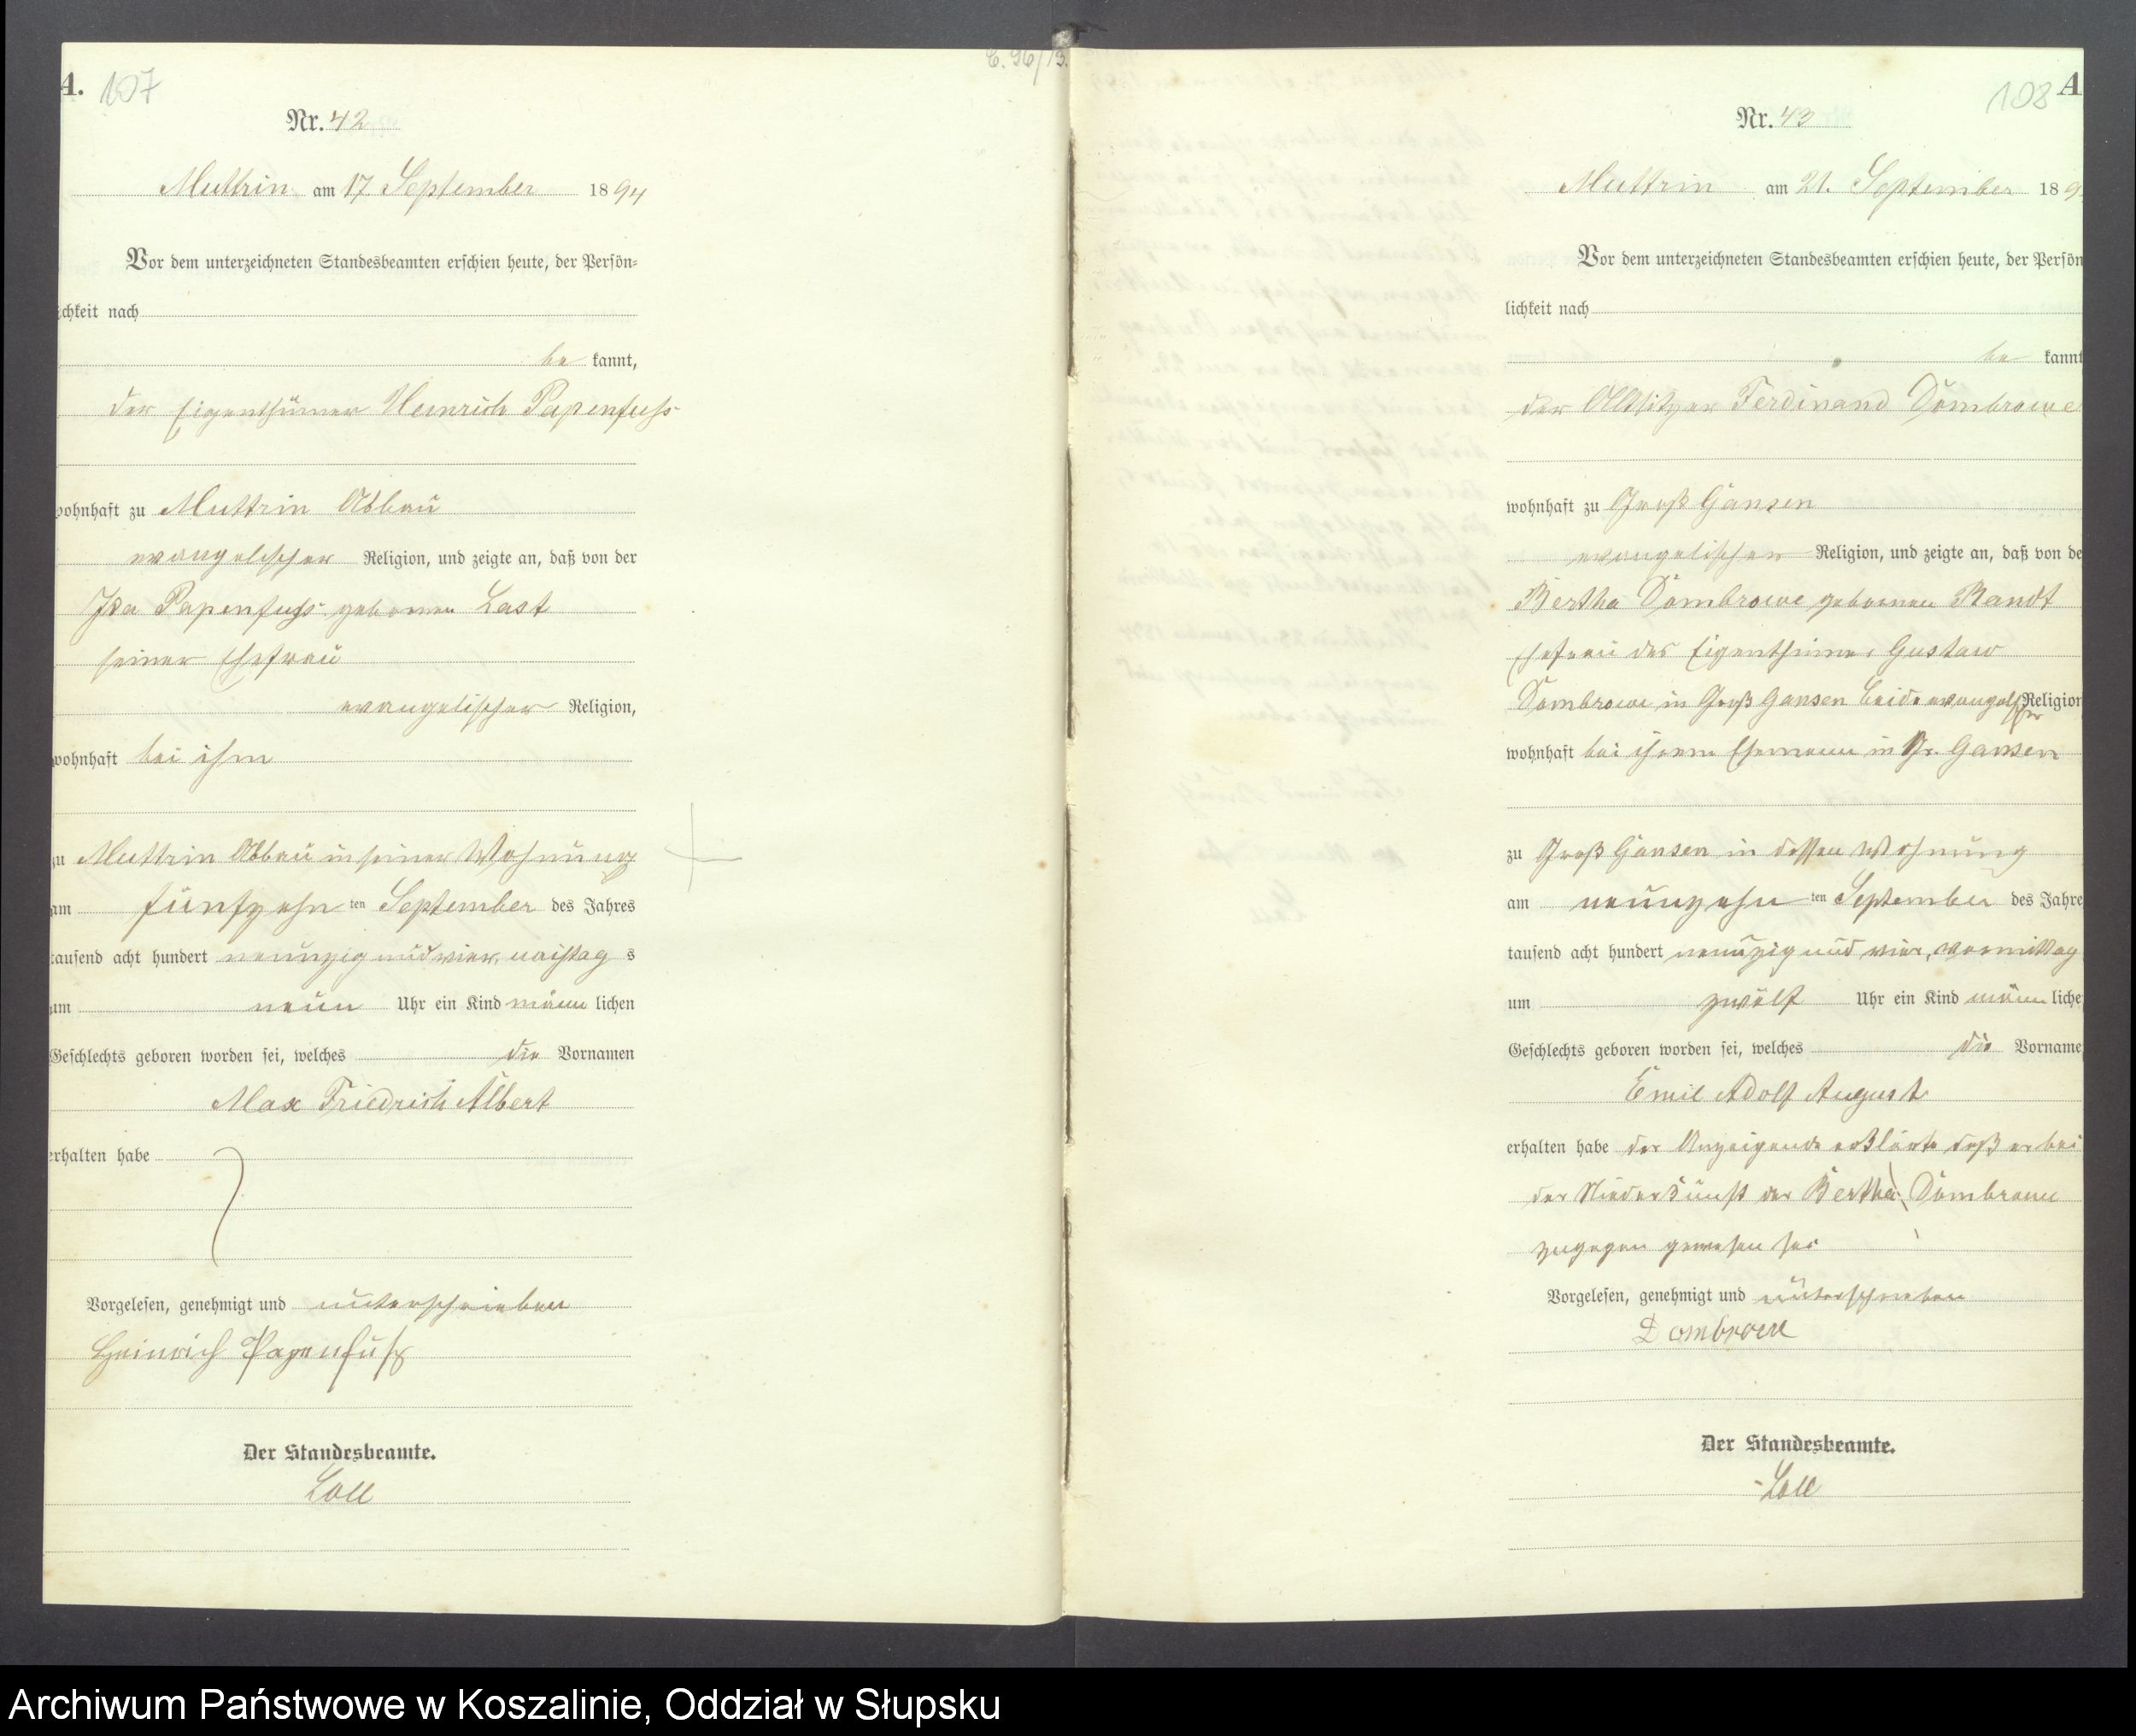 C. 96/13.
A. 107
Nr. 42
Muttrin am 17 September 1894
Vor dem unterzeichneten Standesbeamten erschien heute, der Persön-
lichkeit nach
be kannt,
der Eigenthümer Heinrich Papenfuhs
wohnhaft zu Muttrin Abbau
evangelischer Religion, und zeigte an, daß von der
Ida Papenfuhs geborenen Last
seiner Ehefrau
evangelischer Religion,
wohnhaft bei ihm
zu Muttrin Abbau in seiner Wohnung
am fünfzehn ten September des Jahres
tausend acht hundert neunzig und vier, nachtag s
um neun Uhr ein Kind männ lichen
Geschlechts geboren worden sei, welches die Vornamen
Max Friedrich Albert
erhalten habe
Vorgelesen, genehmigt und unterschrieben
Heinrich Papenfuß
Der Standesbeamte.
Loll
108 A
Nr. 43
Muttrin am 21. September 189
Vor dem unterzeichneten Standesbeamten erschien heute, der Persön
lichkeit nach
be kannt
der Altsitzer Ferdinand Dombrowe
wohnhaft zu Groß Gansen
evangelischer Religion, und zeigte an, daß von de
Bertha Dombrowe geborenen Randt
Ehefrau des Eigenthümer Gustav
Dombrowe in Groß Gansen beide evangelischer Religion
wohnhaft bei ihrem Ehemann in Gr. Gansen
zu Groß Gansen in dessen Wohnung
am neunzehn ten September des Jahre
tausend acht hundert neunzig und vier, vormittag
um zwölf Uhr ein Kind männ liche
Geschlechts geboren worden sei, welches die Vorname
Emil Adolf August
erhalten habe der Anzeigende erklärte daß er bei
der Niederkunft der Bertha Dombrowe
zugegen gewesen sei
Vorgelesen, genehmigt und unterschrieben
Dombrowe
Der Standesbeamte.
Loll
Archiwum Państwowe w Koszalinie, Oddział w Słupsku